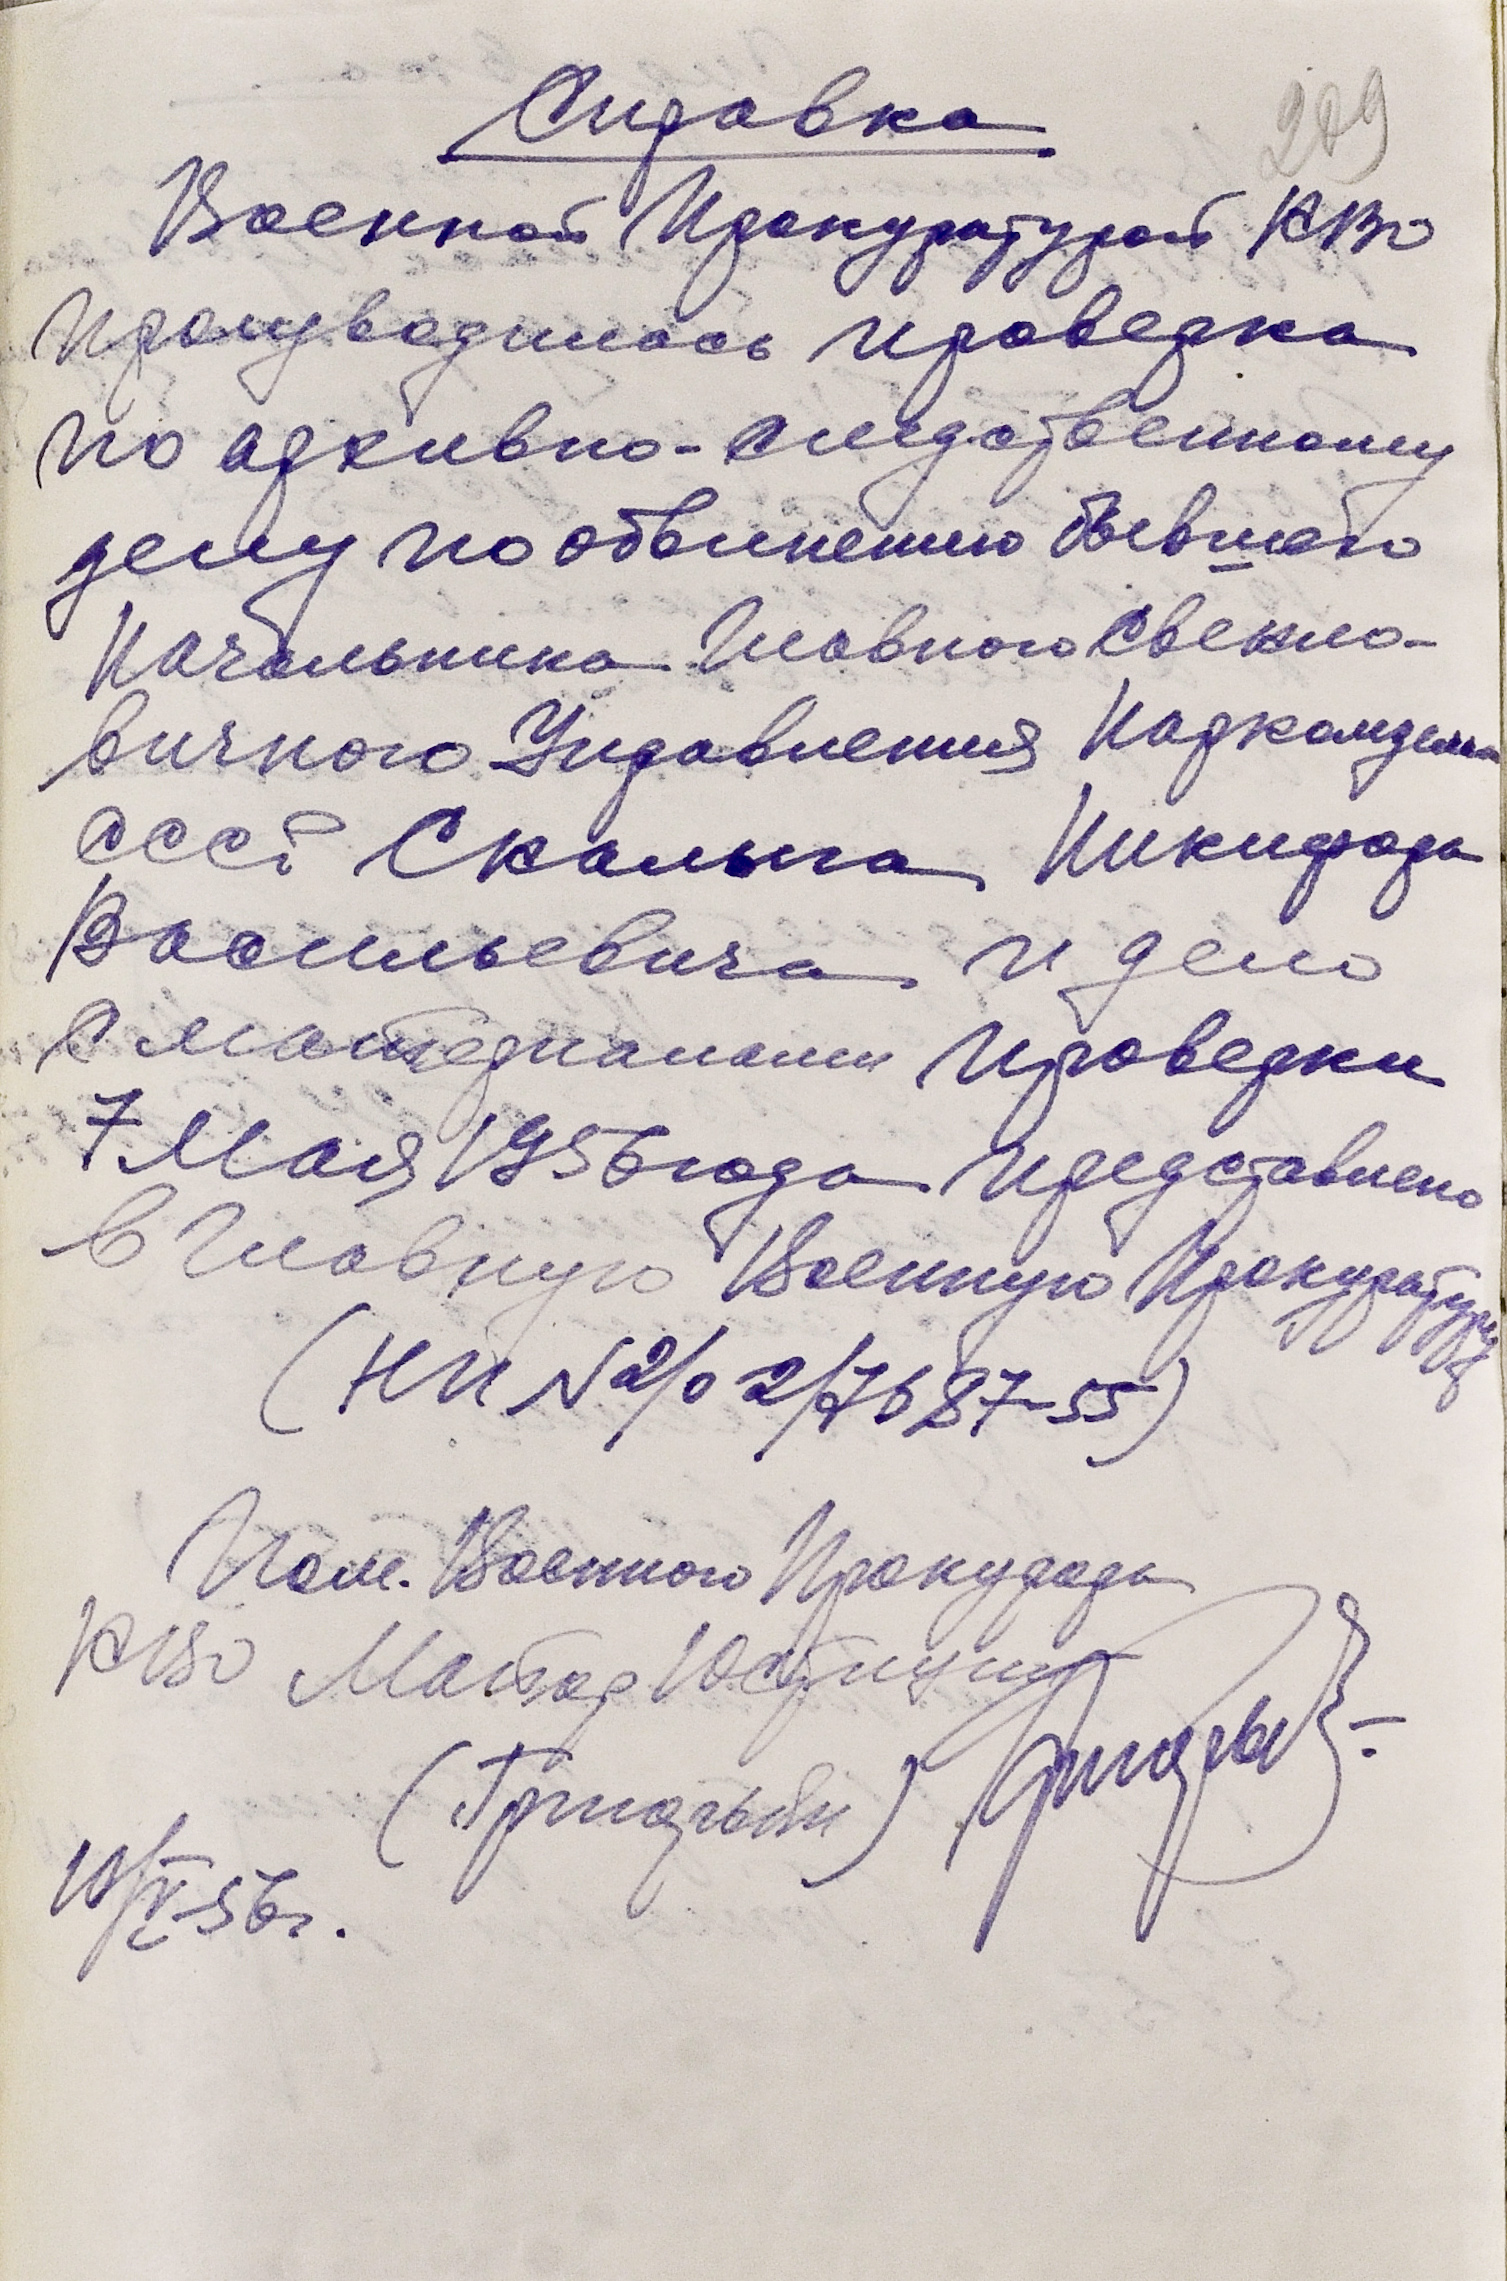 209
Справка
Военной Прокуратурой КВО
производилась проверка
по архивно-следственному
делу по обвинению бывшего
Начальника Главного Свекло-
вичного Управления Наркомзема
СССР Скалыга Никифора
Васильевича и дело
с материалами проверки
7 Мая 1956 года представлено
в Главную Военную Прокуратуру
(НП №
Пом. Военного Прокурора
КВО Майор Юстиции
10/V-56г.